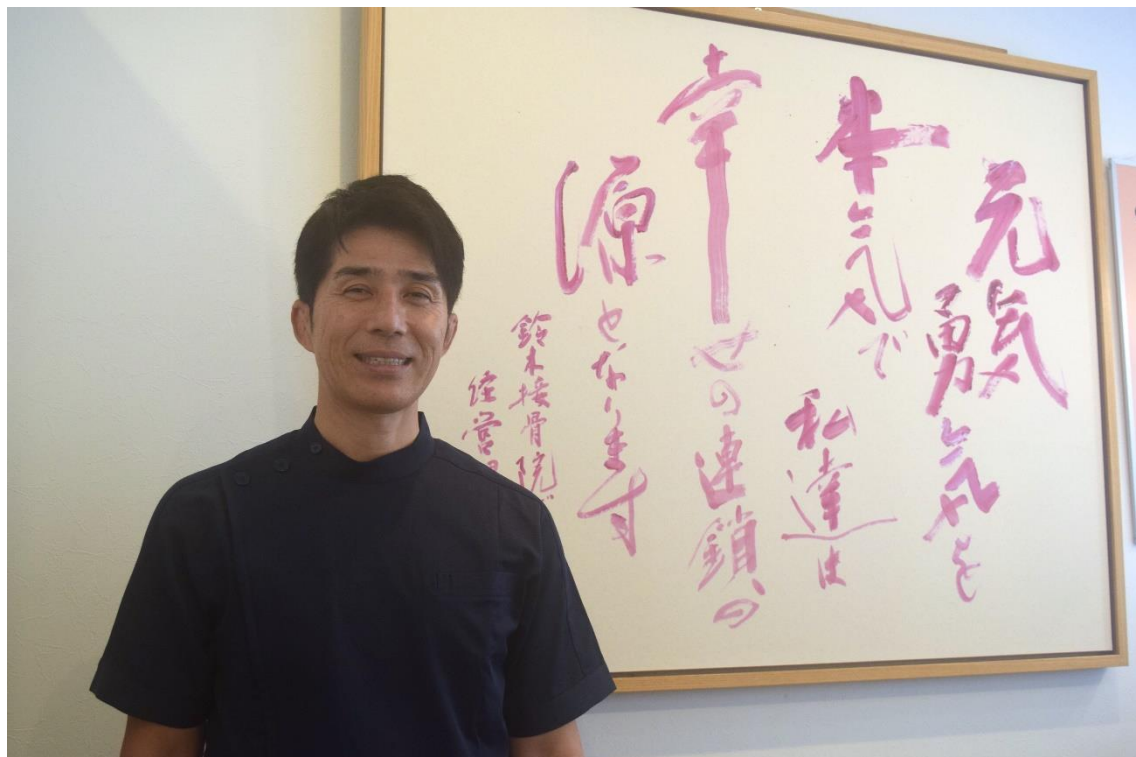 元気
勇気を
本気で
私達は
幸せの連鎖の
源となります
鈴木接骨院
経営